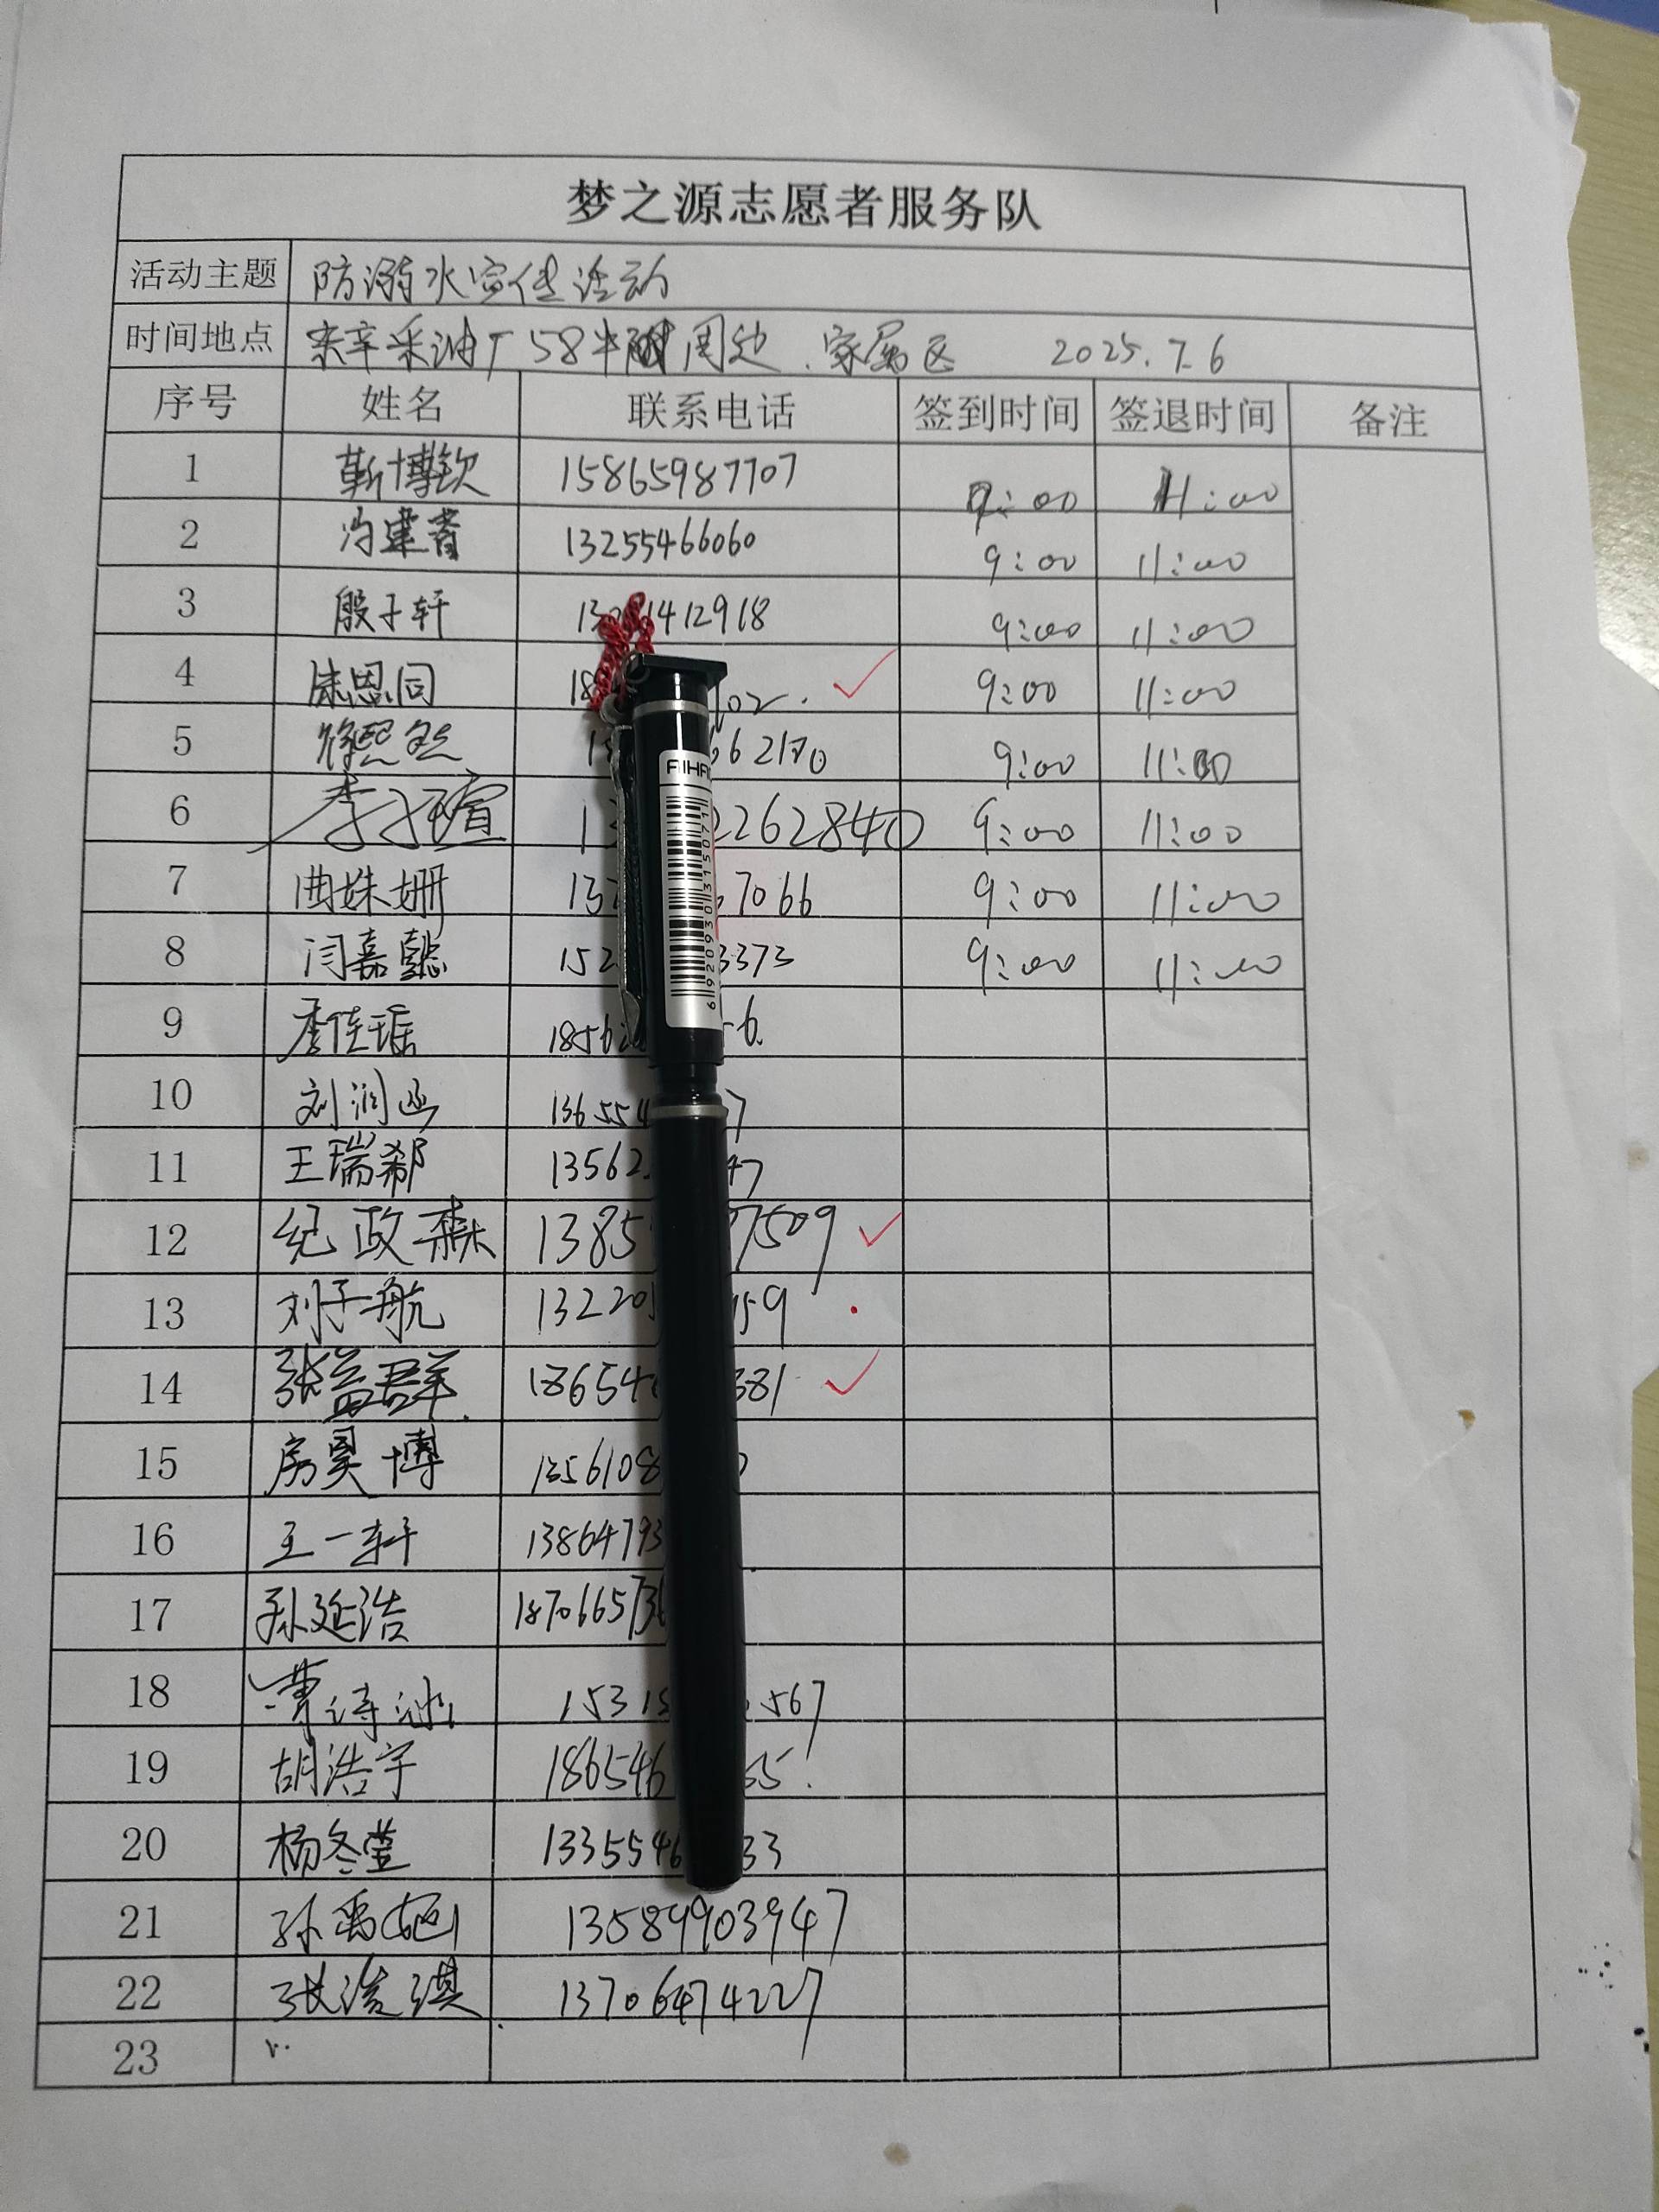 梦之源志愿者服务队
活动主题 防溺水宣传活动
时间地点 东辛采油厂58 周边.家属区 2025.7.6
序号 姓名 联系电话 签到时间 签退时间 备注
1 靳博钦 15865987707 9:00 11:00
2 冯建 13255466060 9:00 11:00
3 殷子轩 13 1412918 9:00 11:00
4 恩同 18 02. 9:00 11:00
5 徐熙 662170 9:00 11:00
6 李子瑄 13 2262840 9:00 11:00
7 曲姝姗 13 7066 9:00 11:00
8 闫嘉懿 152 3373 9:00 11:00
9 李佳瑶 1856 6.
10 刘润 136554 7
11 王瑞 13562 47
12 纪政森 1385 7509
13 刘子航 13220 59
14 张益群 18654 381
15 房昊博 1356108
16 王一轩 13864793
17 孙延浩 187066573
18 曹诗冰 1531 567
19 胡浩宇 186546 65.
20 杨冬莹 133554 33
21 孙禹 13589903947
22 张 琪 13706474227
23
AIHA
6920930315071